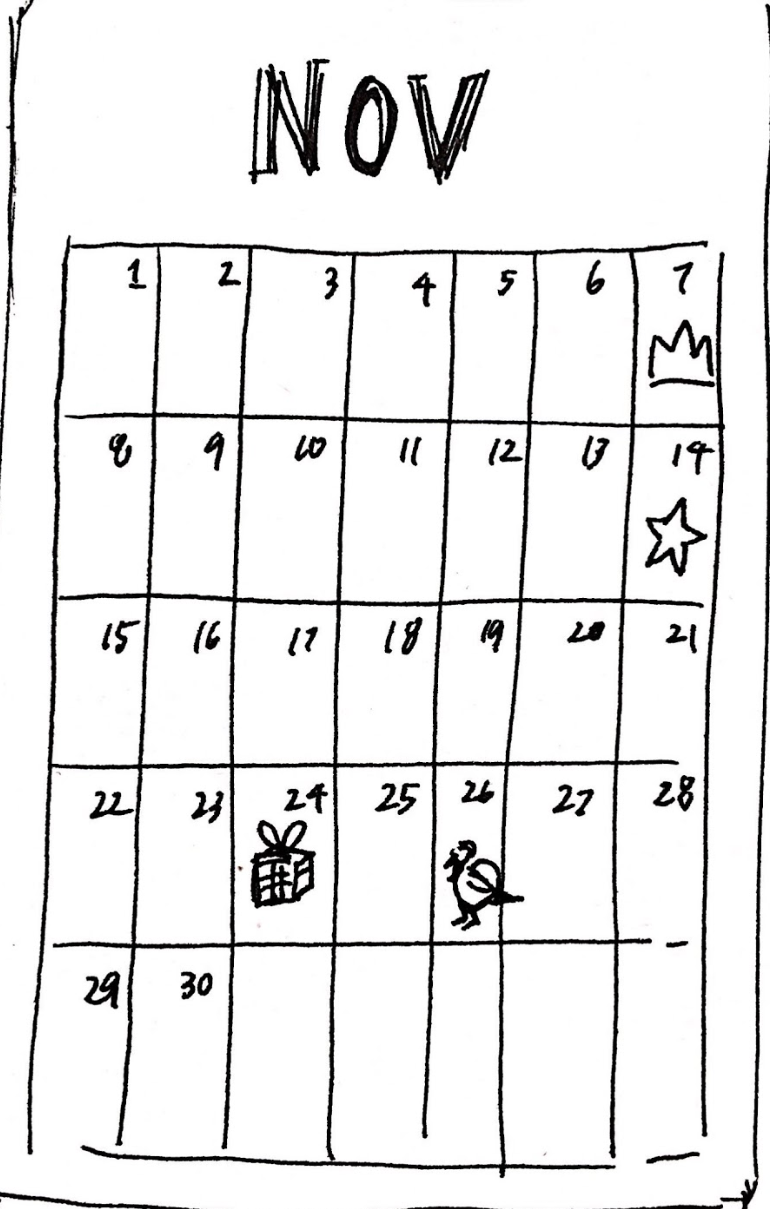 NOV
1 2 3 4 5 6 7
8 9 10 11 12 13 14
15 16 17 18 19 20 21
22 23 24 25 26 27 28
29 30